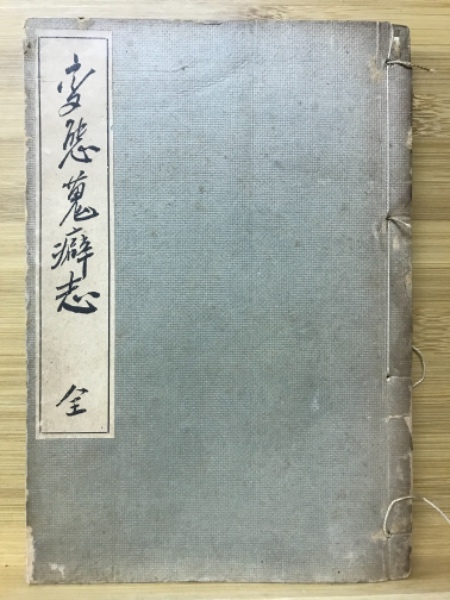 変態蒐癖志
全